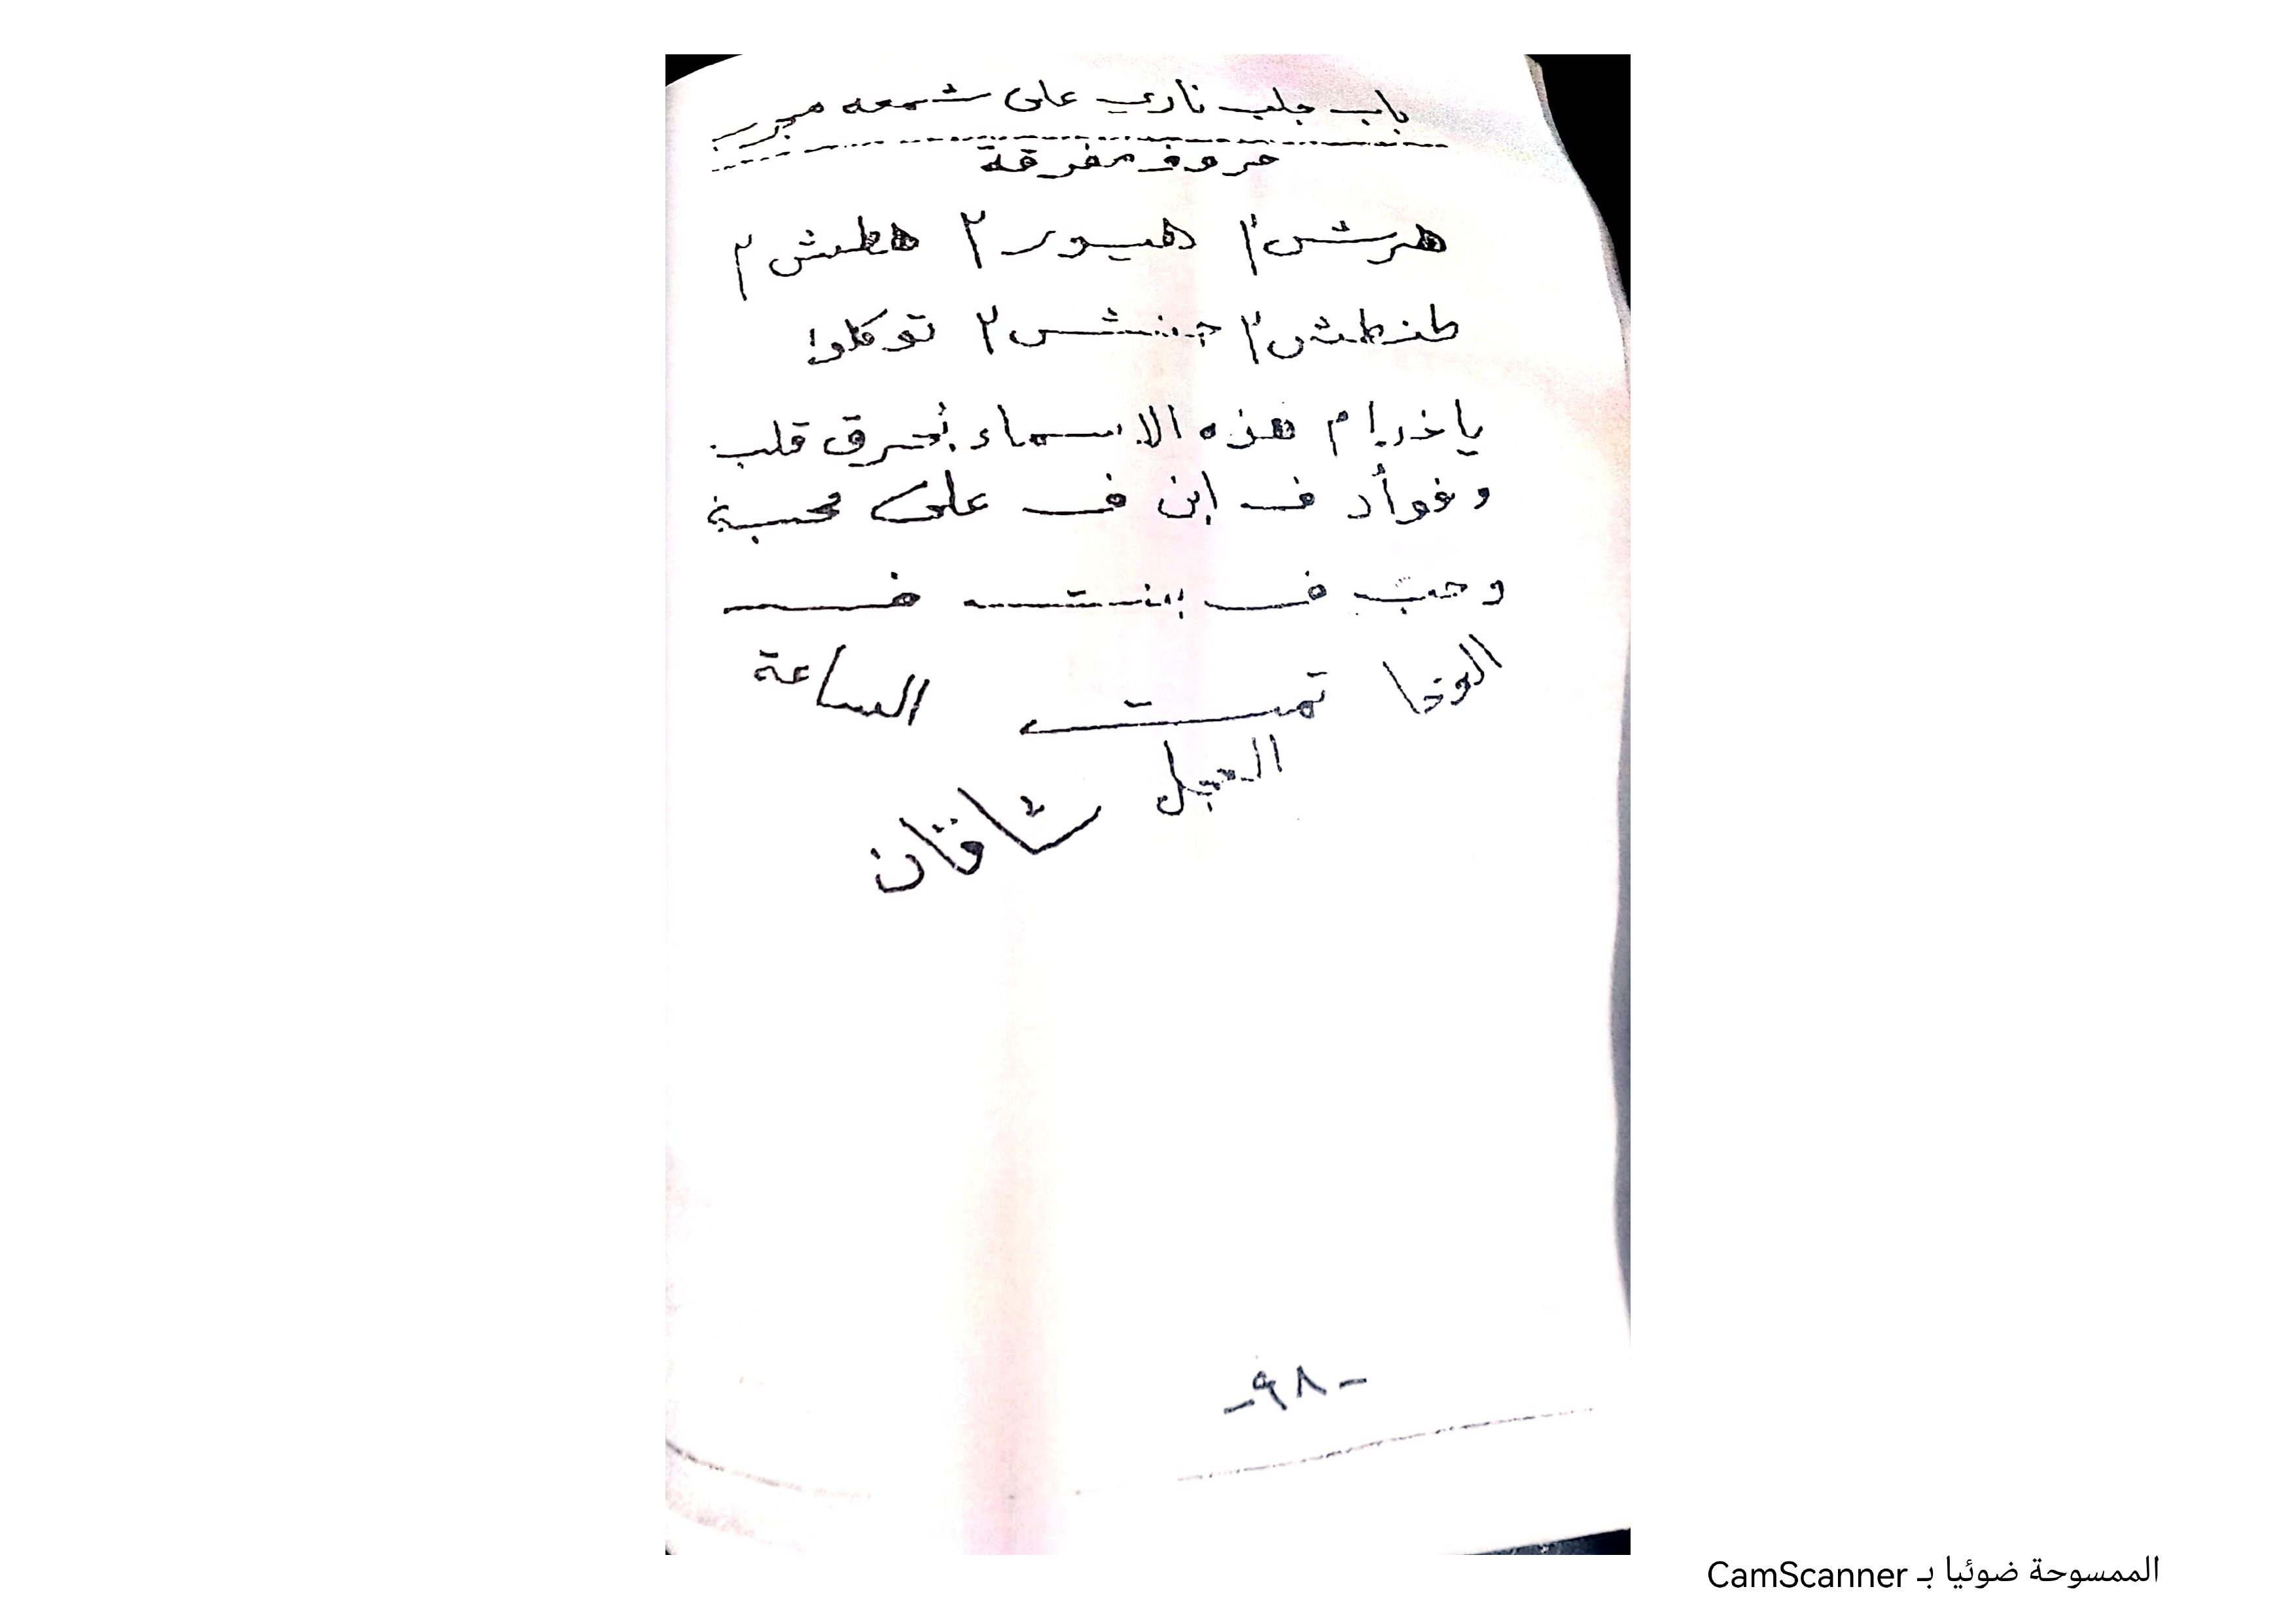 باب جلب ناري على شمعه مجرب
حروف مفرقة
هرش٢ هيور ٢ هطش ٢
طنطش٢ جنش ٢ توكلوا
يا خدام هذه الاسماء بحرق قلب
وفوأد ف ابن ف على محبة
وحب ف بنت ف
الوحا تمت الساعة
العجل
- ٩٨ -
الممسوحة ضوئيا بـ CamScanner